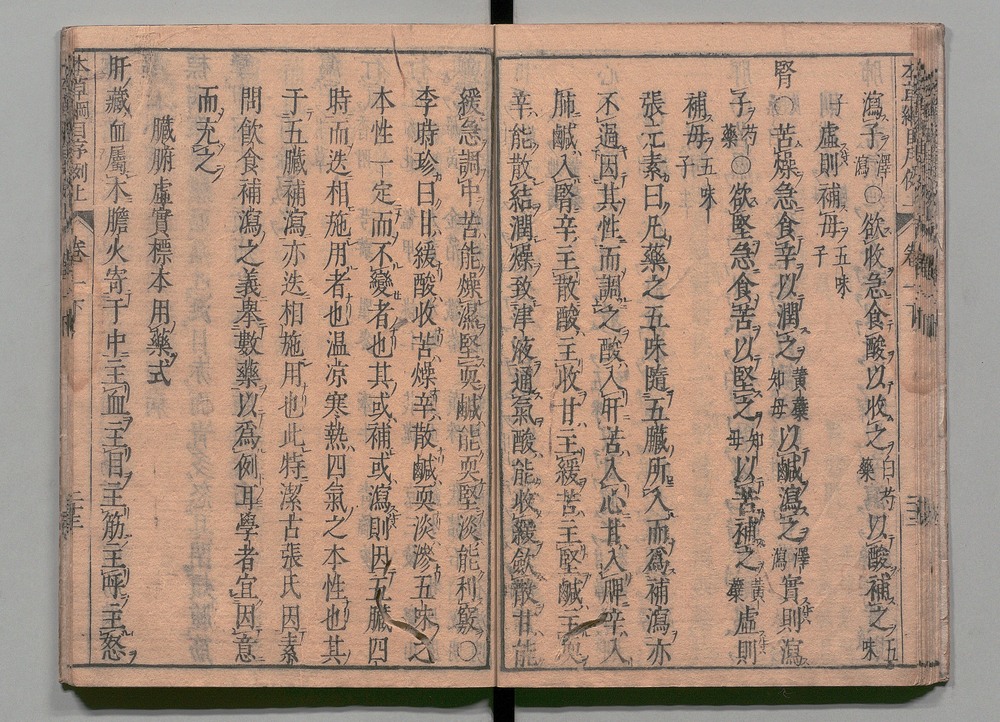 瀉子澤瀉〇欲收急食酸以收之白芍藥以酸補之五味
子虛則補母五味子
腎〇苦燥急食辛以潤之黃蘗知母以鹹瀉之澤瀉實則瀉
子芍藥〇欲堅急食苦以堅之知母以苦補之黃蘗虛則
補母五味子
張元素曰凡藥之五味隨五臟所入而爲補瀉亦
不過因其性而調之酸入肝苦入心甘入脾辛入
肺鹹入腎辛主散酸主收甘主緩苦主堅鹹主耎
辛能散結潤燥致津液通氣酸能收緩斂散甘能
緩急調中苦能燥濕堅耎鹹能耎堅淡能利竅〇
李時珍曰甘緩酸收苦燥辛散鹹耎淡滲五味之
本性一定而不變者也其或補或瀉則因五臟四
時而迭相施用者也温凉寒熱四氣之本性也其
于五臟補瀉亦迭相施用也此特潔古張氏因素
問飲食補瀉之義擧數藥以爲例耳學者宜因意
而充之
臟腑虛實標本用藥式
肝藏血屬木膽火寄于中主血主目主筋主呼主怒
本草綱目序例上 卷一下 二十三